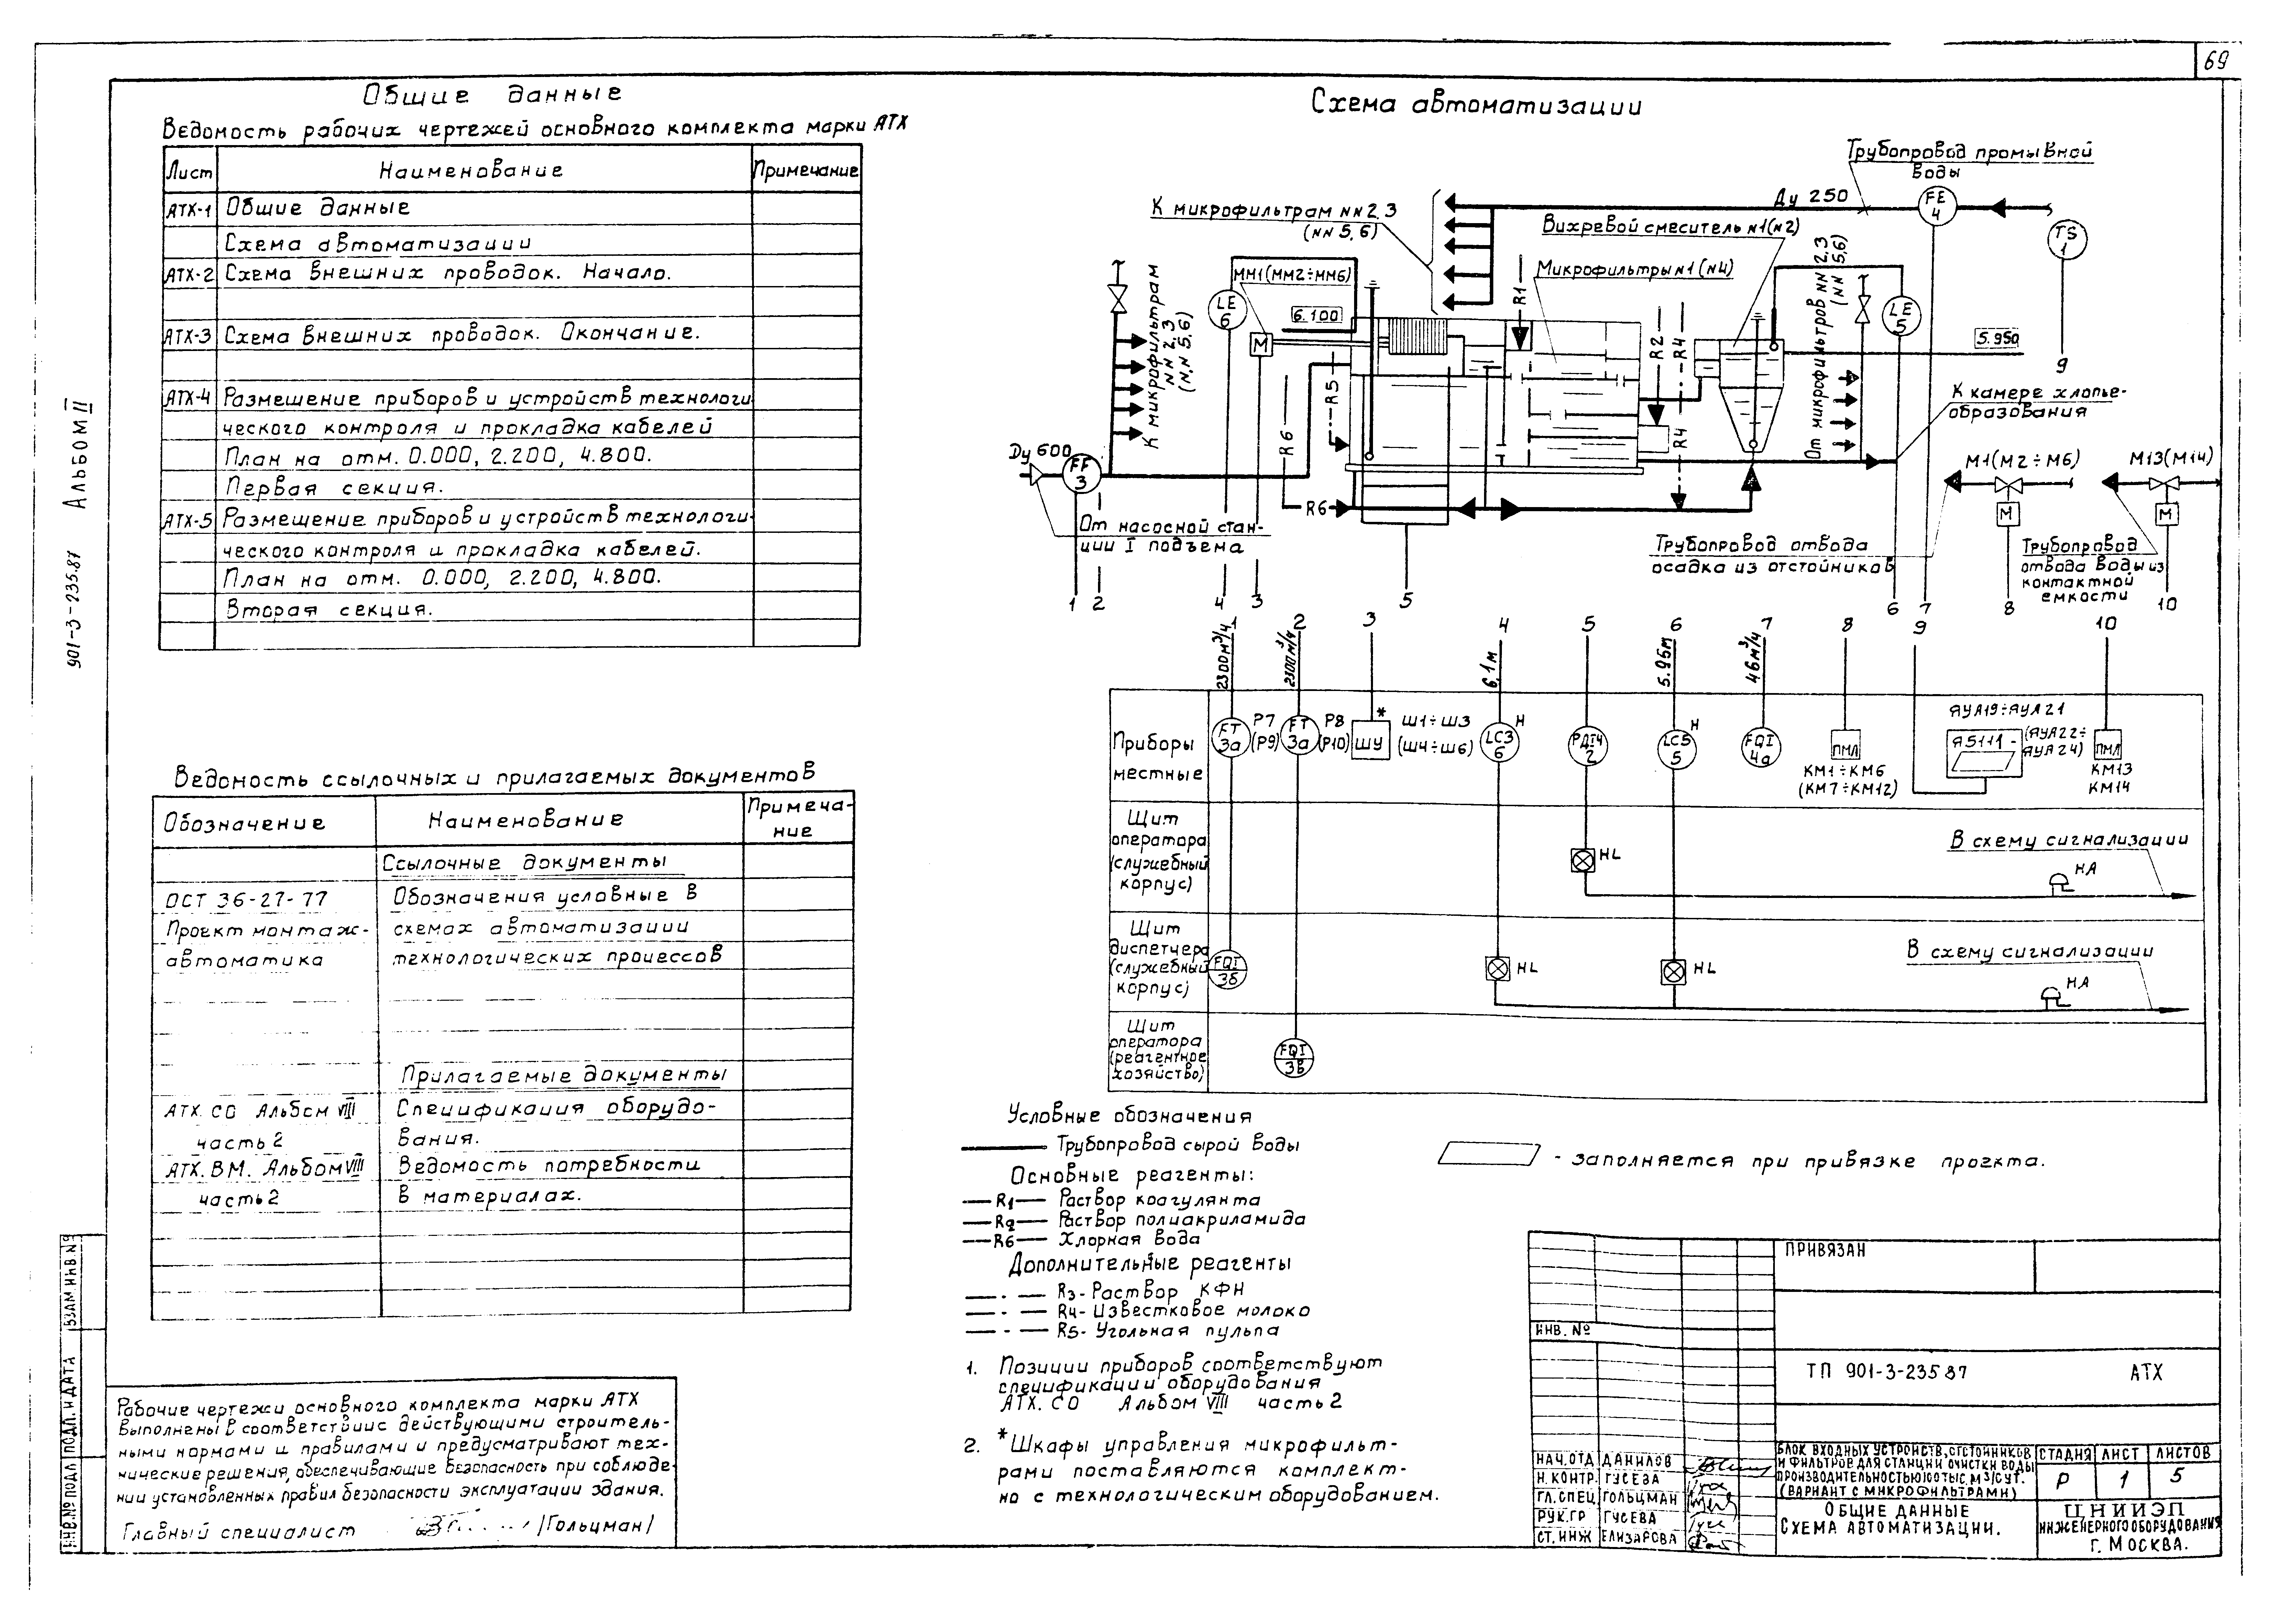 69
Альбом II
901-3-235.87
Общие данные
Ведомость рабочих чертежей основного комплекта марки АТХ
Лист Наименование Примечание
АТХ-1 Общие данные
Схема автоматизации
АТХ-2 Схема внешних проводок. Начало.
АТХ-3 Схема внешних проводок. Окончание.
АТХ-4 Размещение приборов и устройств технологи
ческого контроля и прокладка кабелей
План на отм. 0.000, 2.200, 4.800.
Первая секция.
АТХ-5 Размещение приборов и устройств технологи-
ческого контроля и прокладка кабелей.
План на отм. 0.000, 2.200, 4.800.
Вторая секция.
Ведомость ссылочных и прилагаемых документов
Обозначение Наименование Примеча-
ние
Ссылочные документы
ОСТ 36-27-77 Обозначения условные в
Проект монтаж- схемах автоматизации
автоматика технологических процессов
Прилагаемые документы
АТХ. СО Альбом VIII Спецификация оборудо-
часть 2 вания.
АТХ. ВМ. Альбом VIII Ведомость потребности
часть 2 в материалах.
Рабочие чертежи основного комплекта марки АТХ
выполнены в соответствиис действующими строитель-
ными нормами и правилами и предусматривают тех-
нические решения, обеспечивающие безопасность при соблюде-
нии установленных правил безопасности эксплуатации здания.
Главный специалист /Гольцман/
ИНВ.№ ПОДЛ ПОДП. И ДАТА ВЗАМ.ИНВ.№
Схема автоматизации
Трубопровод промывной
воды
Ду 250
FE
4
TS
1
К микрофильтрам NN 2,3
(NN 5,6)
Вихревой смеситель N1(N2)
Микрофильтры N1 (N4)
ММ1(ММ2÷ММ6)
LE
6
6.100
М
К микрофильтрам
NN 2,3
(NN 5,6)
R1
R2
R4
R4
R5
R6
R6
От микрофильтров NN 2,3
(NN 5,6)
LE
5
5.950
9
К камере хлопье-
образования
Ду 600
FF
3
От насосной стан-
ции I подъема
М1(М2÷М6)
М13(М14)
М
М
Трубопровод отвода
осадка из отстойников
Трубопровод
отвода воды из
контактной
емкости
1 2 4 3 5 6 7 8 10
1 2 3 4 5 6 7 8 9 10
2300м³/ч
2300м³/ч
6,1м
5.96м
46м³/ч
Приборы
местные
FT
3а
Р7
(Р9)
FT
3а
Р8
(Р10)
*
ШУ
Ш1÷Ш3
(Ш4÷Ш6)
LC3
6
Н
РДI4
2
LC5
5
Н
FQI
4а
ПМЛ
КМ1÷КМ6
(КМ7÷КМ12)
ЯУЛ19÷ЯУЛ21
Я5111-
(ЯУЛ22÷
ЯУЛ24)
ПМЛ
КМ13
КМ14
Щит
оператора
(служебный
корпус)
HL
В схему сигнализации
НА
Щит
диспетчера
(служебный
корпус)
FQI
3б
HL
HL
В схему сигнализации
НА
Щит
оператора
(реагентное
хозяйство)
FQI
3в
Условные обозначения
Трубопровод сырой воды
Основные реагенты:
R1 Раствор коагулянта
R2 Раствор полиакриламида
R6 Хлорная вода
Дополнительные реагенты
R3- Раствор КФН
R4- Известковое молоко
R5- Угольная пульпа
- заполняется при привязке проекта.
1. Позиции приборов соответствуют
спецификации оборудования
АТХ. СО Альбом VIII часть 2
2. *Шкафы управления микрофильт-
рами поставляются комплект-
но с технологическим оборудованием.
ПРИВЯЗАН
ИНВ. №
ТП 901-3-235 87 АТХ
НАЧ.ОТД ДАНИЛОВ
Н.КОНТР. ГУСЕВА
ГЛ.СПЕЦ ГОЛЬЦМАН
РУК.ГР ГУСЕВА
СТ.ИНЖ ЕЛИЗАРОВА
БЛОК ВХОДНЫХ УСТРОЙСТВ, ОТСТОЙНИКОВ
И ФИЛЬТРОВ ДЛЯ СТАНЦИИ ОЧИСТКИ ВОДЫ
ПРОИЗВОДИТЕЛЬНОСТЬЮ 100 ТЫС. М³/СУТ.
(ВАРИАНТ С МИКРОФИЛЬТРАМИ)
СТАДИЯ ЛИСТ ЛИСТОВ
Р 1 5
ОБЩИЕ ДАННЫЕ
СХЕМА АВТОМАТИЗАЦИИ.
ЦНИИЭП
ИНЖЕНЕРНОГО ОБОРУДОВАНИЯ
Г. МОСКВА.